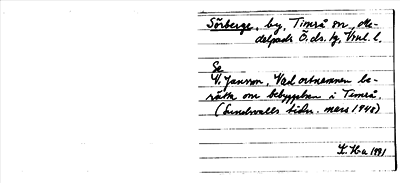 Sörberge, by, Timrå sn, Me-
delpads Ö. ds. hg, Vnl. l.
Se
V. Janson, Vad ortnamnen be-
rätta om bebyggelsen i Timrå.
(Sundsvalls tidn. mars 1948)
1981